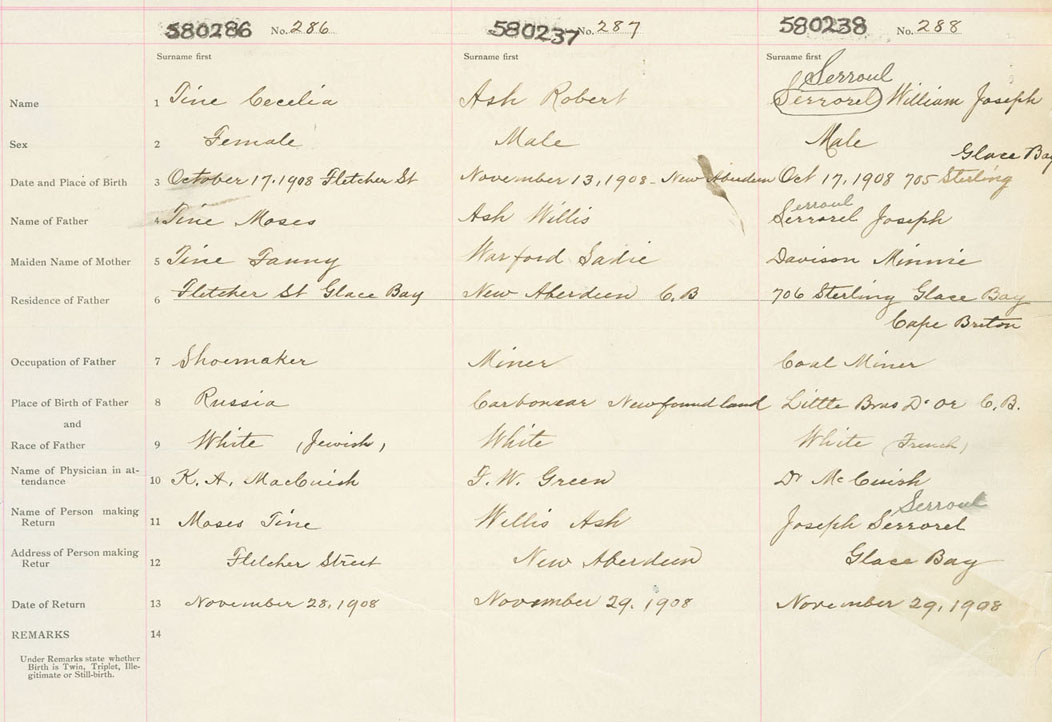 580286 No. 286 580237 No. 287 580238 No. 288
Surname first Surname first Surname first
Serroul
Name 1 Tine Cecelia Ash Robert Serrorel William Joseph
Sex 2 Female Male Male
Glace Bay
Date and Place of Birth 3 October 17, 1908 Fletcher St November 13, 1908 - New Aberdeen Oct 17, 1908 705 Sterling
serroul
Name of Father 4 Tine Moses Ash Willis Serrorel Joseph
Maiden Name of Mother 5 Tine Fanny Warford Sadie Davison Minnie
Residence of Father 6 Fletcher St Glace Bay New Aberdeen C.B 706 Sterling Glace Bay
Cape Breton
Occupation of Father 7 Shoemaker Miner Coal Miner
Place of Birth of Father 8 Russia Carbonear Newfoundland Little Bras D'or C.B.
and
Race of Father 9 White (Jewish) White White (French)
Name of Physician in at-
tendance 10 K. A. MacCuish F. W. Green Dr McCuish
Serroul
Name of Person making
Return 11 Moses Tine Willis Ash Joseph Serrorel
Address of Person making
Retur 12 Fletcher Street New Aberdeen Glace Bay
Date of Return 13 November 28, 1908 November 29, 1908 November 29, 1908
REMARKS 14
Under Remarks state whether
Birth is Twin, Triplet, Ille-
gitimate or Still-birth.